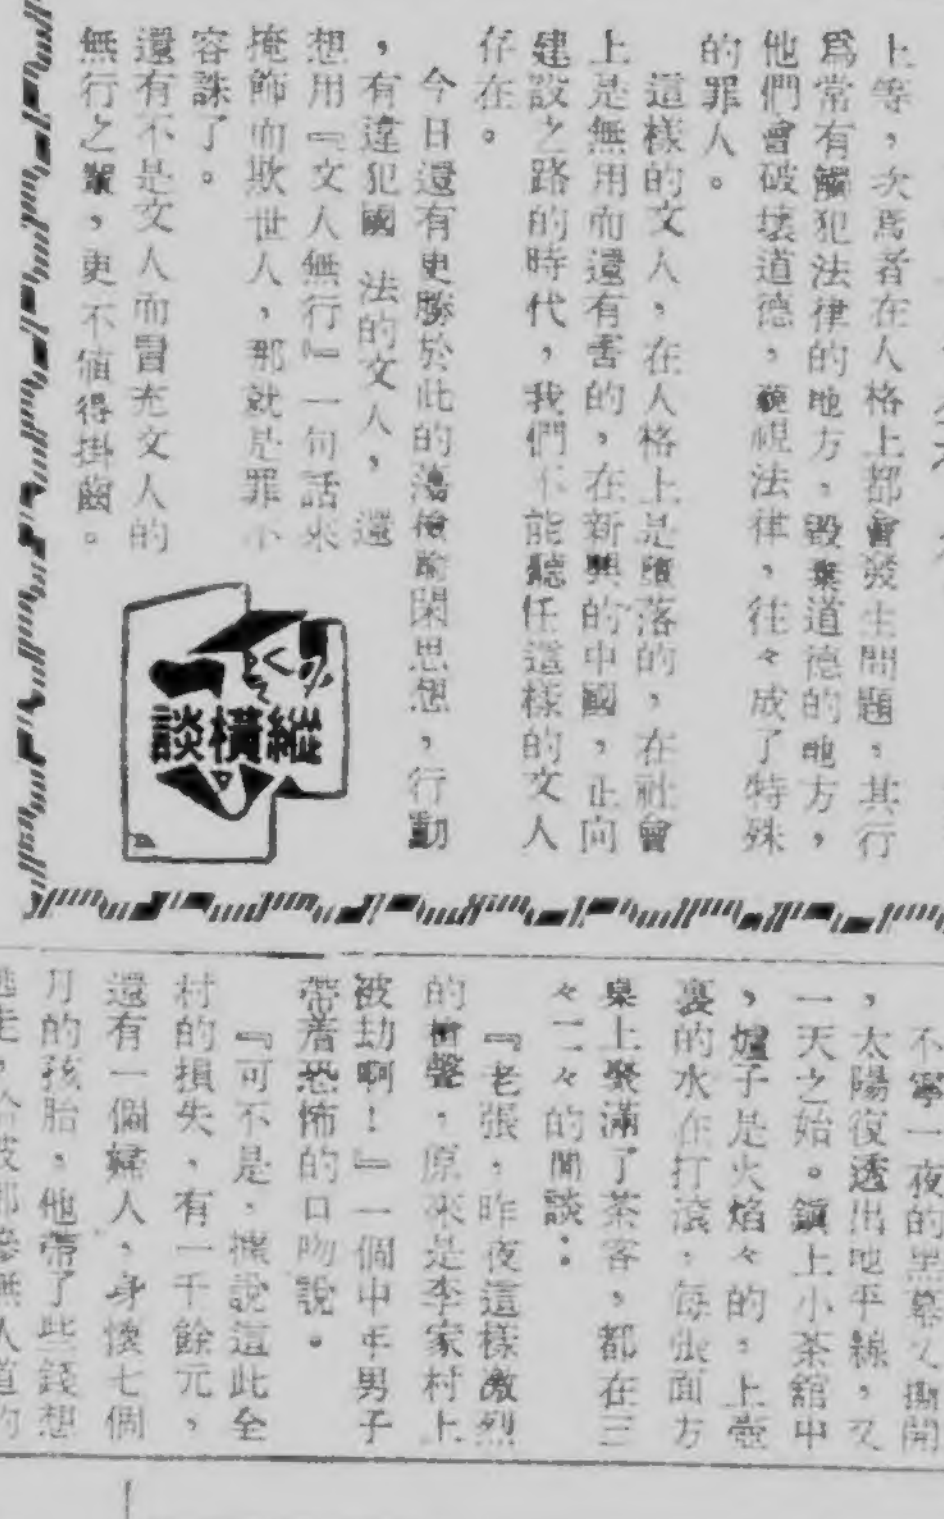 上等，次焉者在人格上都會發生問題，其行
爲常有觸犯法律的地方，毀棄道德的地方，
他們會破壞道德，藐視法律，往々成了特殊
的罪人。
這樣的文人，在人格上是墮落的，在社會
上是無用而還有害的，在新興的中國，正向
建設之路的時代，我們不能聽任這樣的文人
存在。
今日還有更勝於此的蕩檢踰閑思想，行動
，有違犯國 法的文人，還
想用『文人無行』一句話來
掩飾而欺世人，那就是罪不
容誅了。
還有不是文人而冒充文人的
無行之輩，更不值得掛齒。
縱橫談
不寧一夜的黑幕又撕開
，太陽復透出地平綫，又
一天之始。鎭上小茶舘中
，爐子是火焰々的，上壺
裏的水在打滾，每張面方
桌上聚滿了茶客，都在三
々二々的閒談：
『老張，昨夜這樣激烈
的槍聲，原來是李家村上
被劫啊！』一個中年男子
帶着恐怖的口吻說。
『可不是，據說這此全
村的損失，有一千餘元，
還有一個婦人，身懷七個
月的孩胎，他帶了些錢想
逃走，被那慘無人道的